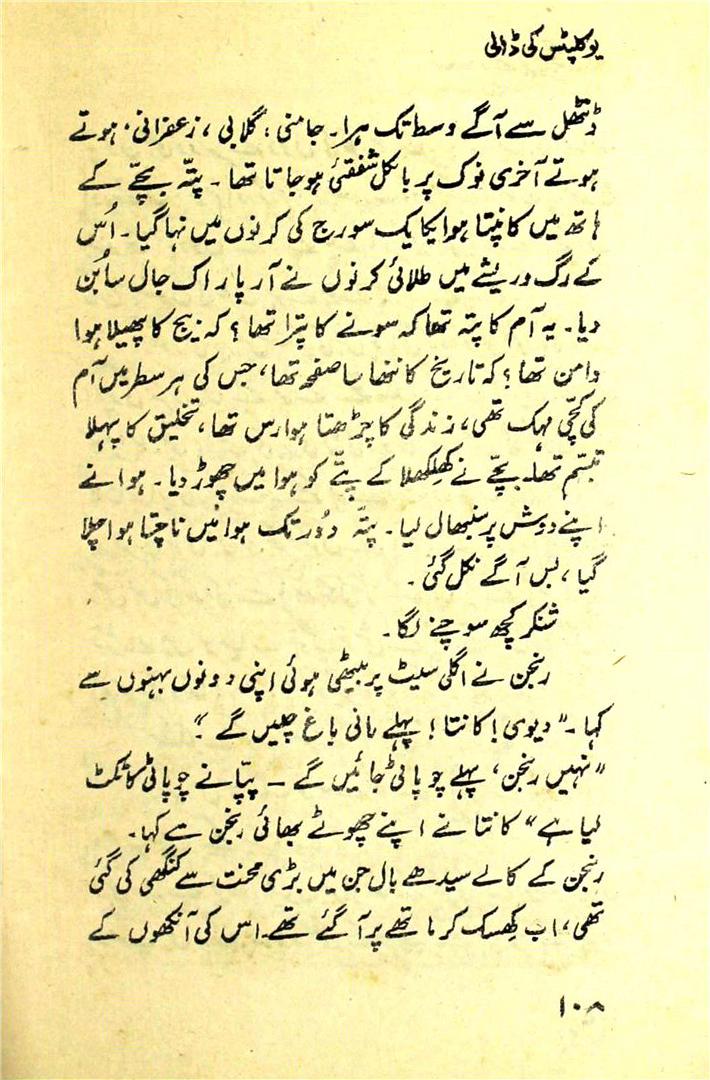 یوکلپٹس کی ڈالی
ڈنٹھل سے آگے وسط تک ہرا۔ جامنی، گلابی، زعفرانی، ہوتے
ہوتے آخری نوک پر بالکل شفقئی ہو جاتا تھا۔ پتّہ بچّے کے
ہاتھ میں کانپتا ہوا یکایک سورج کی کرنوں میں نہا گیا۔ اُس
کے رگ و ریشے میں طلائی کرنوں نے آر پار اک جال سا بُن
دیا۔ یہ آم کا پتہ تھا کہ سونے کا پترا تھا؟ کہ بیج کا پھیلا ہوا
دامن تھا؟ کہ تاریخ کا ننھا سا صفحہ تھا، جس کی ہر سطر میں آم
کی کچّی مہک تھی، زندگی کا چڑھتا ہوا رس تھا، تخلیق کا پہلا
تبسّم تھا۔ بچّے نے کھِلکھلا کے پتّے کو ہوا میں چھوڑ دیا۔ ہوا نے
اپنے دوش پر سنبھال لیا۔ پتّہ دُور تک ہوا میں ناچتا ہوا چلا
گیا، بس آگے نکل گئی۔
شنکر کچھ سوچنے لگا۔
رنجن نے اگلی سیٹ پر بیٹھی ہوئی اپنی دونوں بہنوں سے
کہا۔ "دیوی! کانتا! پہلے رانی باغ چلیں گے؟"
"نہیں رنجن، پہلے چوپاٹی جائیں گے ۔ پپّا نے چوپاٹی کا ٹکٹ
لیا ہے" کانتا نے اپنے چھوٹے بھائی رنجن سے کہا۔
رنجن کے کالے سیدھے بال جن میں بڑی محنت سے کنگھی کی گئی
تھی، اب کھِسک کر ماتھے پر آ گئے تھے۔ اس کی آنکھوں کے
۱۰۸